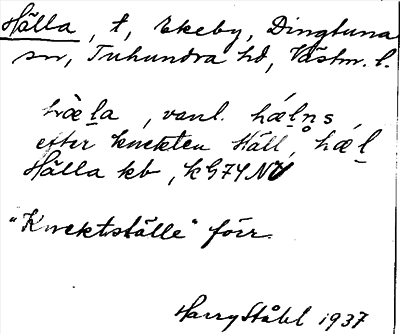 Hälla, t, Ekeby, Dingtuna
sn, Tuhundra hd, Västm. l.
hæ̀la, vanl. hǽlns,
efter knekten Häll, hǽl
Hälla kb, KG74NV
"Knektställe" förr.
Harry Ståhl 1937